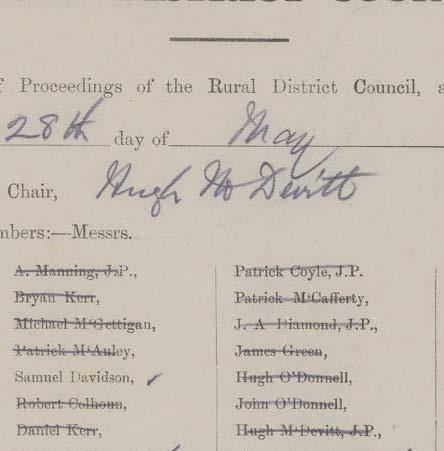 f Proceedings of the Rural District Council, a
28th day of May
Chair, Hugh McDevitt
mbers:—Messrs.
A. Manning, J.P.,
Bryan Kerr,
Michael M'Gettigan,
Patrick M'Auley,
Samuel Davidson, ✓
Robert Colhoun,
Daniel Kerr,
Patrick Coyle, J.P.
Patrick M'Cafferty,
J. A Diamond, J.P.,
James Green,
Hugh O'Donnell,
John O'Donnell,
Hugh M'Devitt, J.P.,